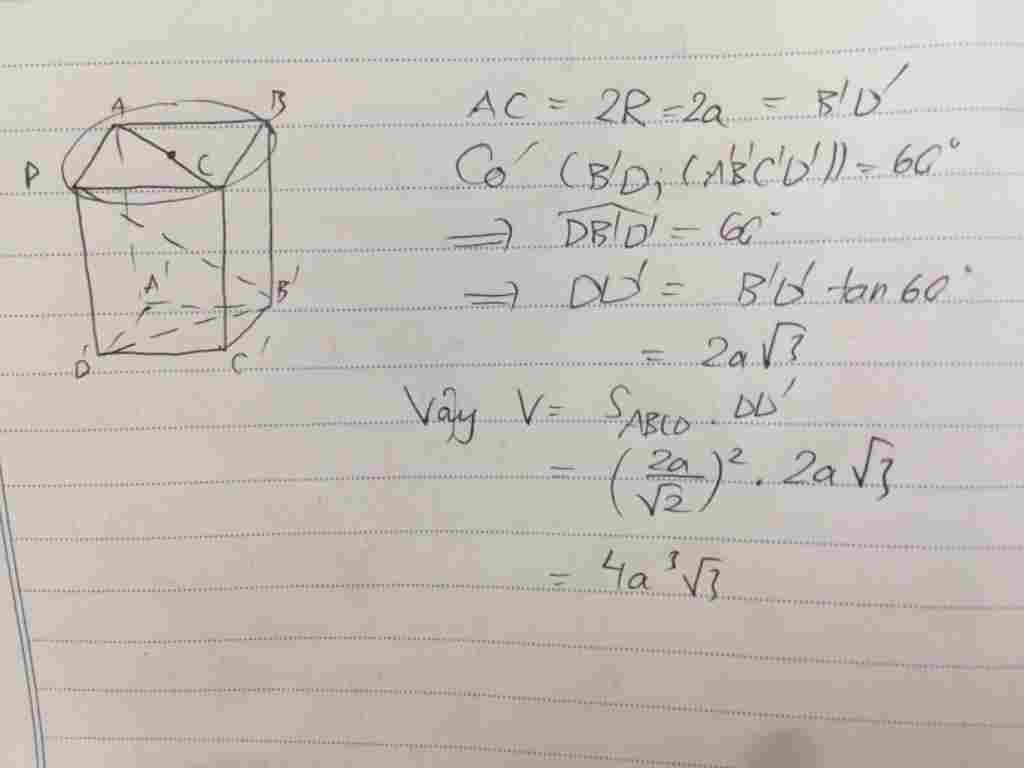 A B
D C
A' B'
D' C'
AC = 2R = 2a = B'D'
Có (B'D; (A'B'C'D')) = 60°
⟹ \widehat{DB'D'} = 60°
⟹ DD' = B'D' tan 60°
= 2a√3
Vậy V = S_{ABCD} . DD'
= (2a/√2)² . 2a√3
= 4a³√3